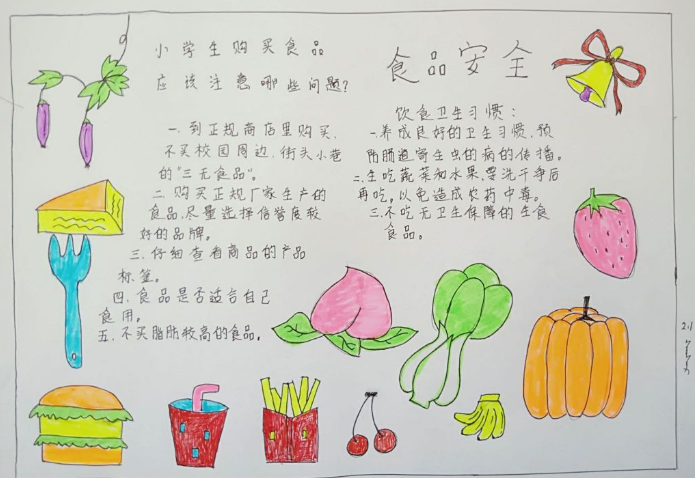 小学生购买食品
应该注意哪些问题？
一、到正规商店里购买，
不买校园周边、街头小巷
的"三无食品"。
二、购买正规厂家生产的
食品，尽量选择信誉度较
好的品牌。
三、仔细查看商品的产品
标签。
四、食品是否适合自己
食用。
五、不买脂肪较高的食品。
食品安全
饮食卫生习惯：
一、养成良好的卫生习惯，预
防肠道寄生虫的病的传播。
二、生吃蔬菜和水果，要洗干净后
再吃，以免造成农药中毒。
三、不吃无卫生保障的生食
食品。